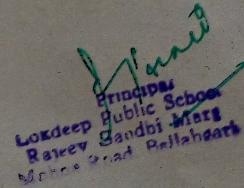 Principal
Lokdeep Public School
Rajeev Gandhi Marg
Road Ballabgarh